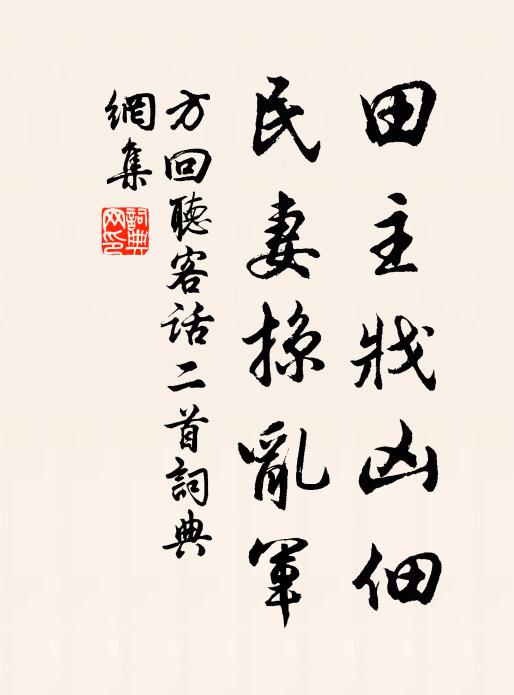 田主戕凶佃
民妻掠亂軍
方回聽客話二首詞典
網集
詞典網印